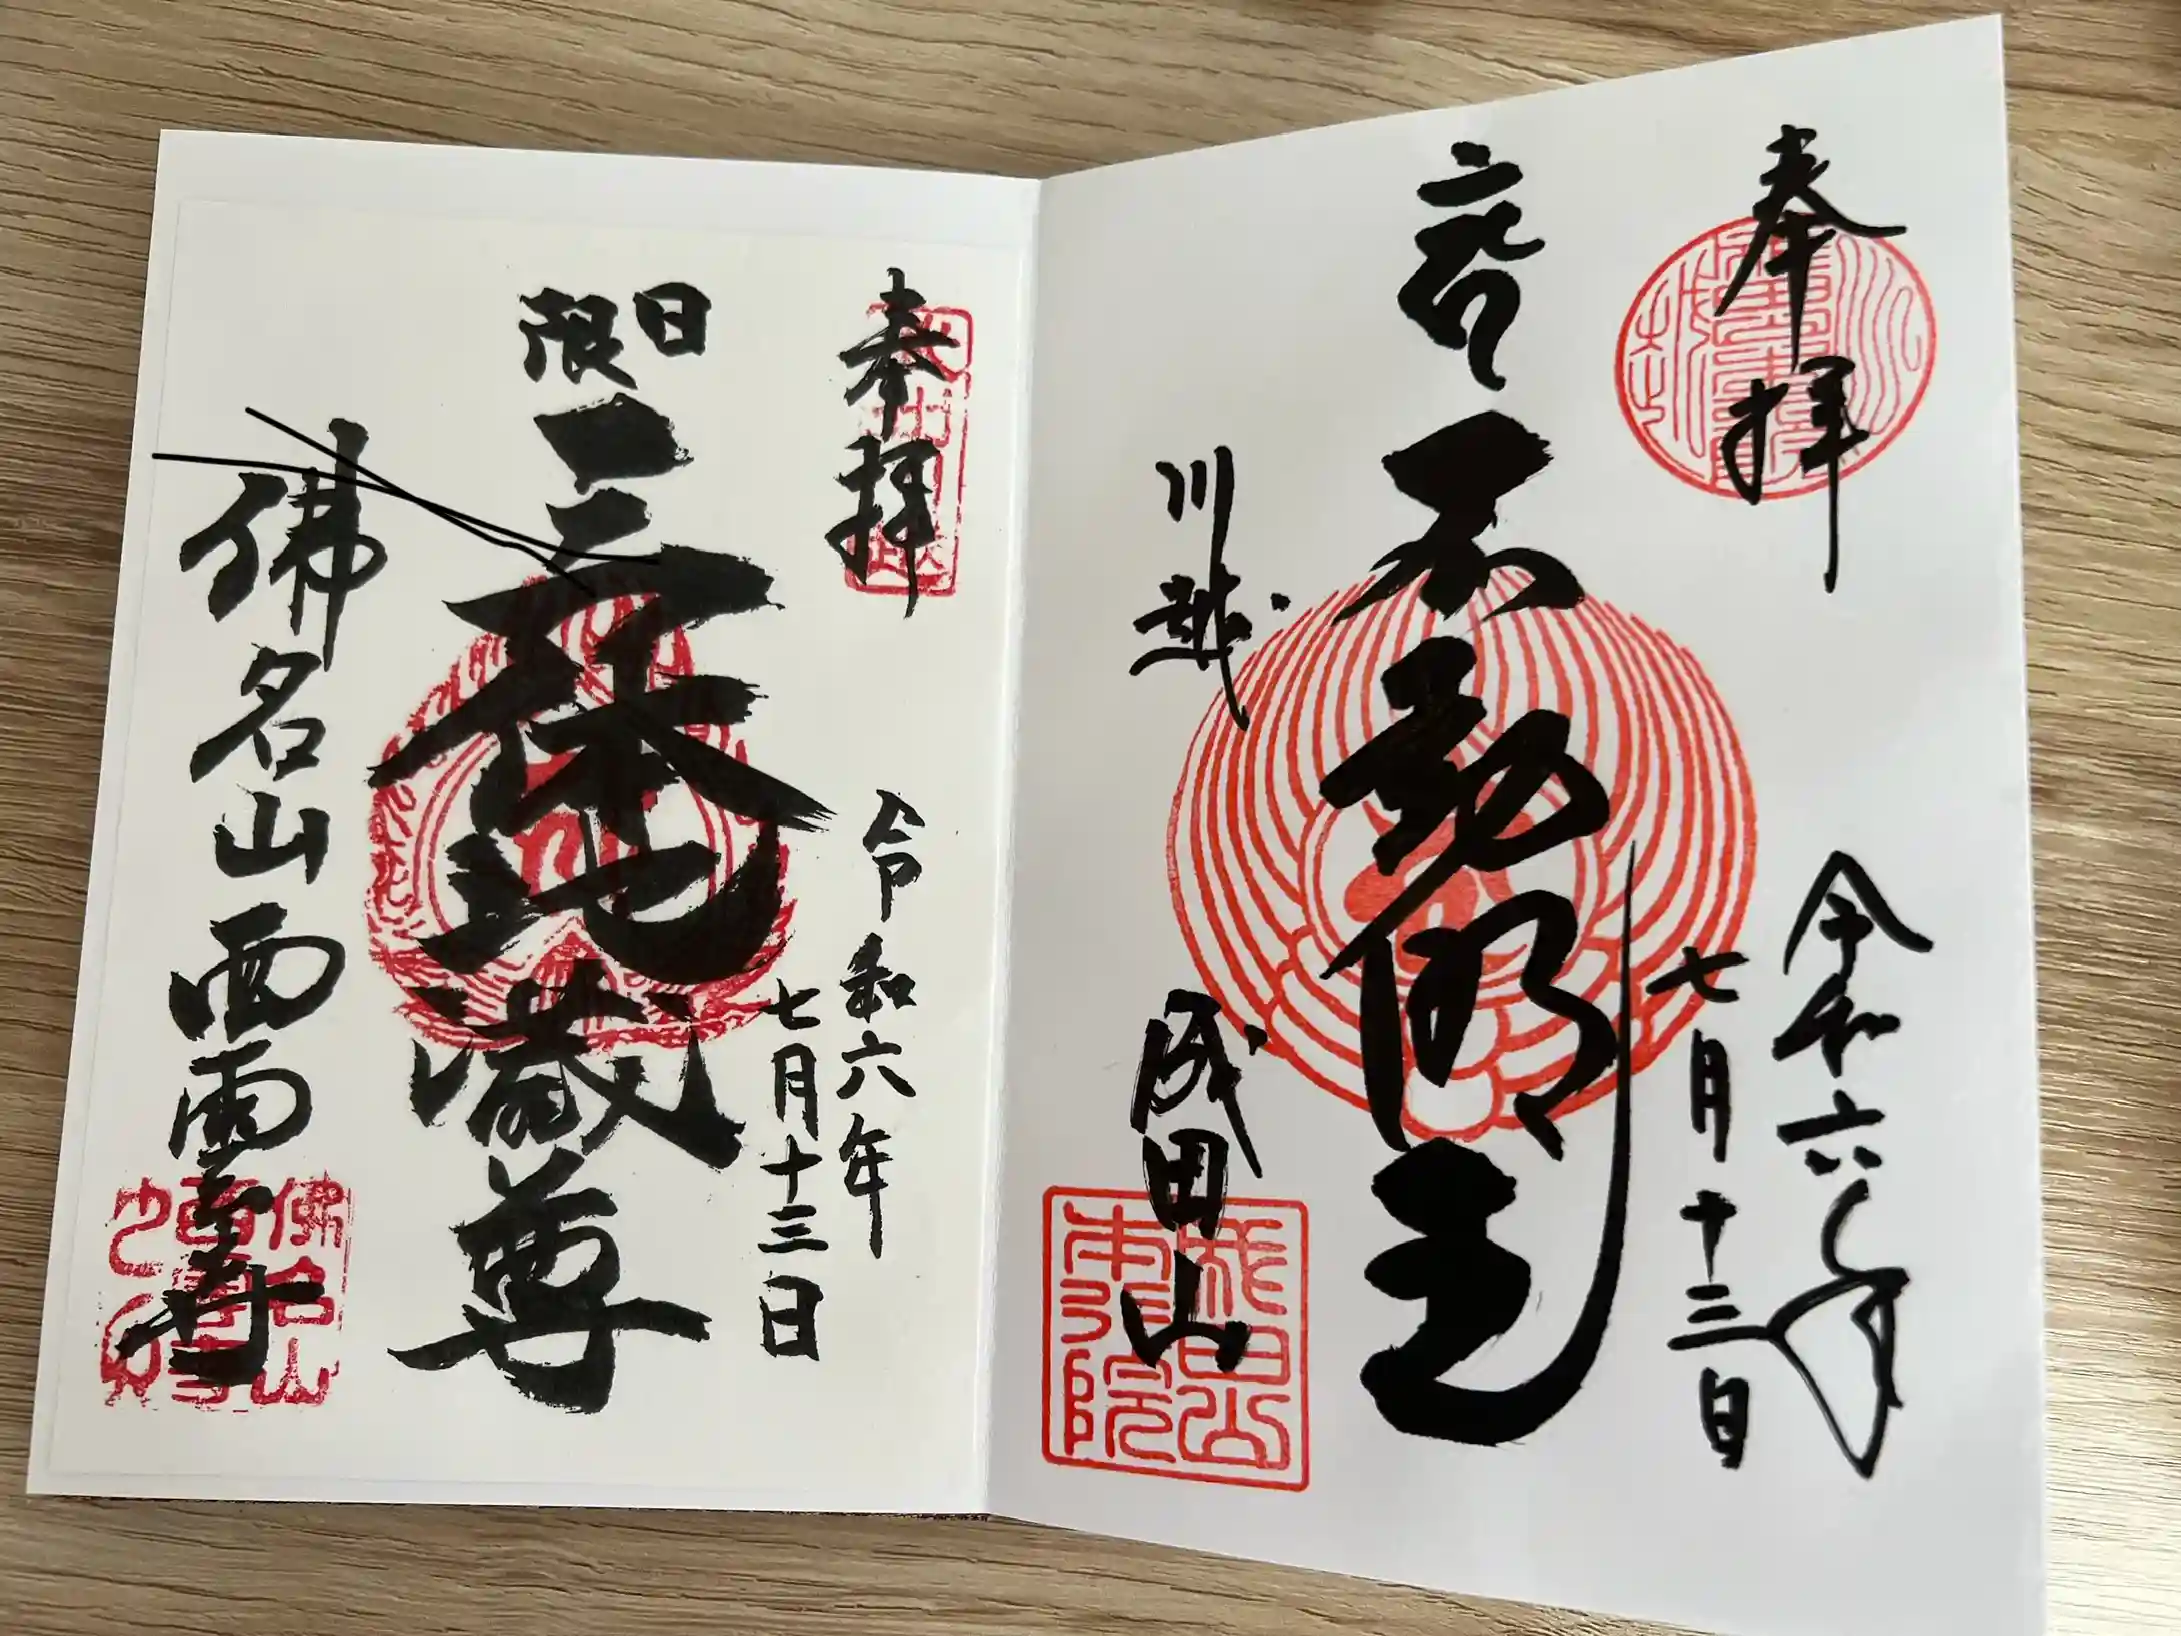 奉拝
令和六年
七月十三日
不動明王
川越
成田山
成田山
本行院
奉拝
武州川越
令和六年
七月十三日
日限
三体地蔵尊
佛名山西雲寺
佛名山
西雲寺
之印